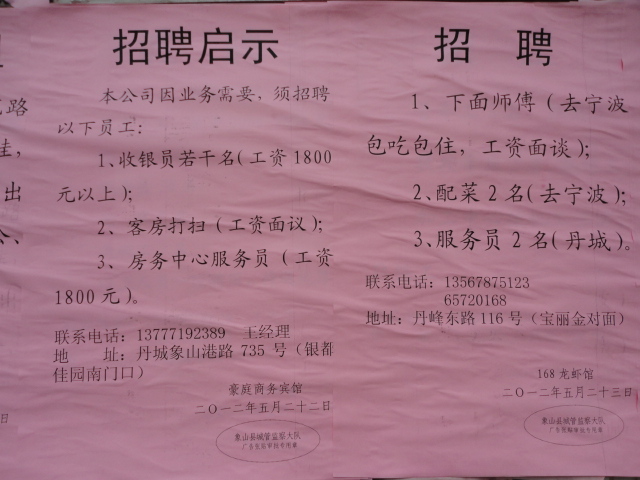 路
佳,
出
日
招聘启示
本公司因业务需要，须招聘
以下员工：
1、收银员若干名(工资1800
元以上)；
2、客房打扫（工资面议)；
3、房务中心服务员（工资
1800元)。
联系电话：13777192389 王经理
地 址：丹城象山港路735号（银都
佳园南门口）
豪庭商务宾馆
二○一二年五月二十二日
象山县城管监察大队
广告张贴审批专用章
招 聘
1、下面师傅（去宁波
包吃包住，工资面谈)；
2、配菜2名(去宁波)；
3、服务员2名(丹城)。
联系电话：13567875123
65720168
地址：丹峰东路116号（宝丽金对面）
168龙虾馆
二○一二年五月二十三日
象山县城管监察大队
广告张贴审批专用章